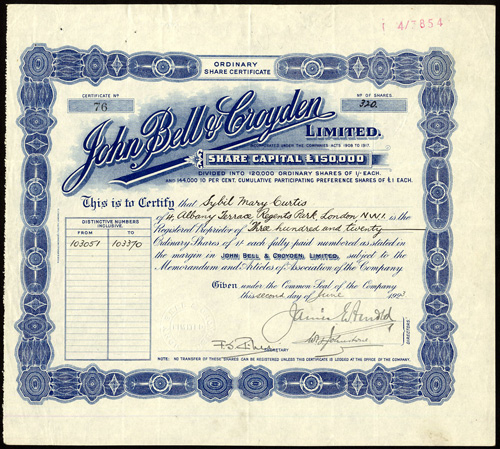 1 4/7854
ORDINARY
SHARE CERTIFICATE
CERTIFICATE Nº
76
Nº OF SHARES.
320.
John Bell & Croyden
LIMITED.
INCORPORATED UNDER THE COMPANIES ACTS 1908 TO 1917.
SHARE CAPITAL £150,000
DIVIDED INTO 120,000 ORDINARY SHARES OF 1/- EACH.
AND 144,000 10 PER CENT. CUMULATIVE PARTICIPATING PREFERENCE SHARES OF £1 EACH.
This is to Certify that Sybil Mary Curtis
of 4, Albany Terrace, Regents Park, London N.W.1. is the
Registered Proprietor of Three hundred and twenty
Ordinary Shares of 1/- each fully paid numbered as stated in
the margin in JOHN BELL & CROYDEN, LIMITED, subject to the
Memorandum and Articles of Association of the Company.
DISTINCTIVE NUMBERS
INCLUSIVE.
FROM TO
103051 103370
Given under the Common Seal of the Company
this second day of June 192
DIRECTORS
SECRETARY
NOTE: NO TRANSFER OF THESE SHARES CAN BE REGISTERED UNLESS THIS CERTIFICATE IS LODGED AT THE OFFICE OF THE COMPANY.